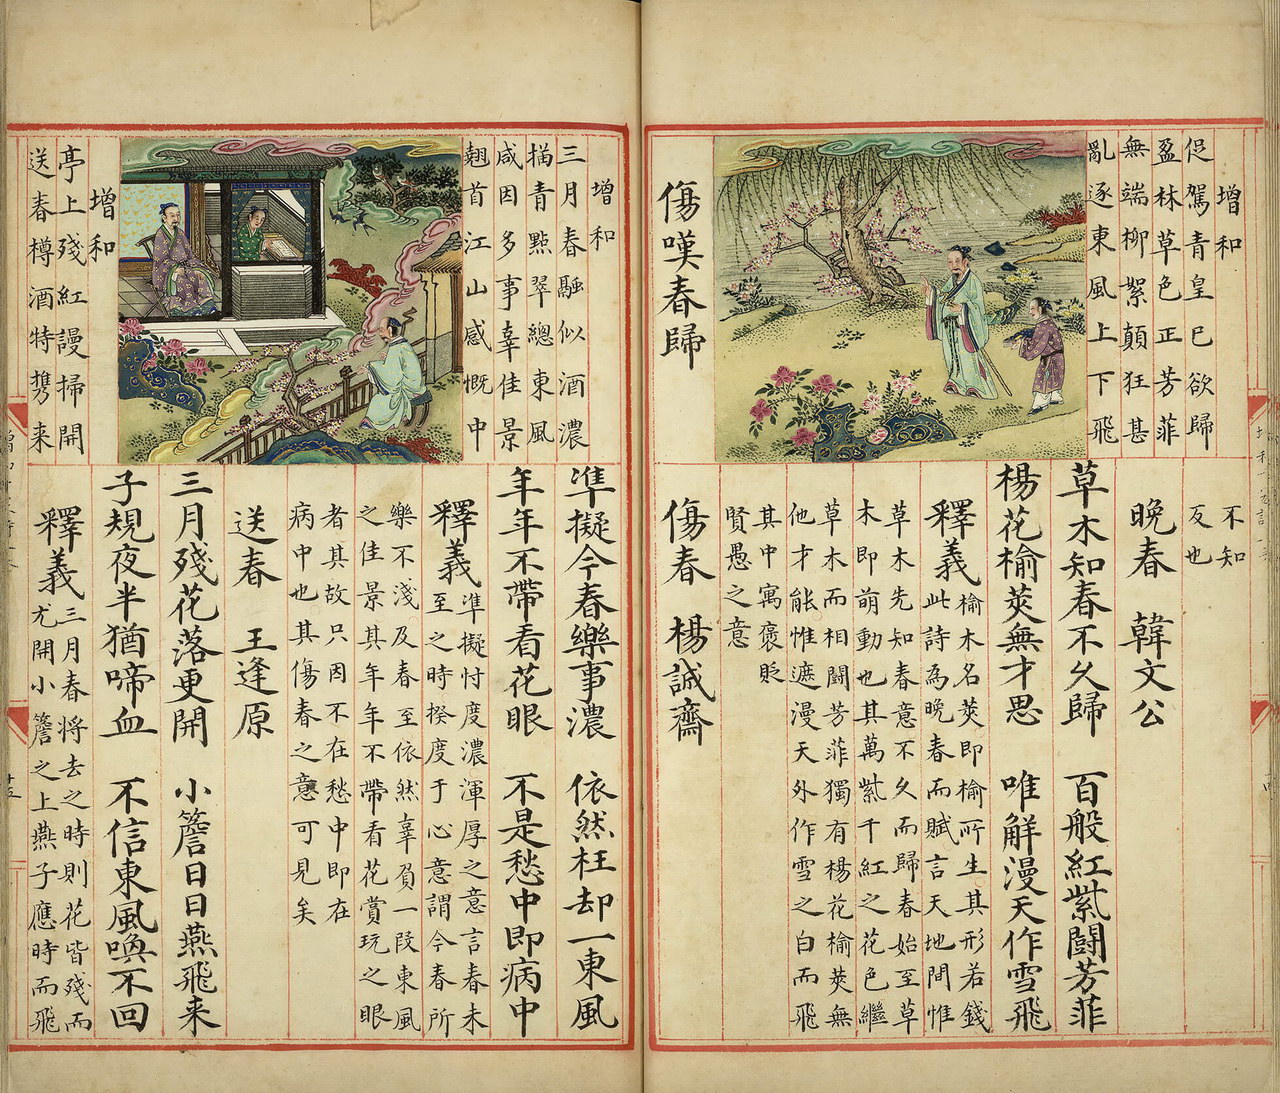 增和
促駕青皇已欲歸
盈林草色正芳菲
無端柳絮顛狂甚
亂逐東風上下飛
傷嘆春歸
不知
反也
晚春 韓文公
草木知春不久歸 百般紅紫鬭芳菲
楊花榆莢無才思 唯解漫天作雪飛
釋義
榆木名莢即榆所生其形若錢
此詩為晚春而賦言天地間惟
草木先知春意不久而歸春始至草
木即萌動也其萬紫千紅之花色繼
草木而相鬭芳菲獨有楊花榆莢無
他才能惟遮漫天外作雪之白而飛
其中寓褒貶
賢愚之意
傷春 楊誠齋
增和
三月春融似酒濃
描青點翠總東風
咸因多事辜佳景
翹首江山感慨中
增和
亭上殘紅謾掃開
送春樽酒特携来
準擬今春樂事濃 依然枉却一東風
年年不帶看花眼 不是愁中即病中
釋義
準擬忖度濃渾厚之意言春未
至之時揆度于心意謂今春所
樂不淺及春至依然辜負一段東風
之佳景其年年不帶看花賞玩之眼
者其故只因不在愁中即在
病中也其傷春之意可見矣
送春 王逢原
三月殘花落更開 小簷日日燕飛来
子規夜半猶啼血 不信東風喚不回
釋義
三月春將去之時則花皆殘而
尤開小簷之上燕子應時而飛